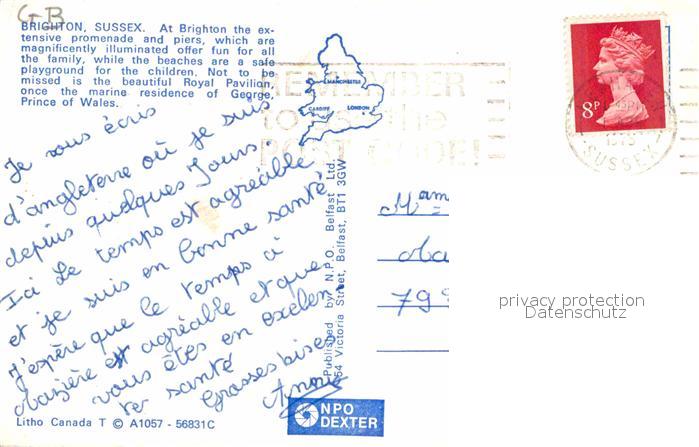 GB
BRIGHTON, SUSSEX. At Brighton the ex-
tensive promenade and piers, which are
magnificently illuminated offer fun for all
the family, while the beaches are a safe
playground for the children. Not to be
missed is the beautiful Royal Pavilion,
once the marine residence of George,
Prince of Wales.
MANCHESTER
CARDIFF LONDON
REMEMBER
to use the
POST CODE!
8P
1975
SUSSEX
Je vous écris
d'angleterre où je suis
depuis quelques Jours.
Ici Le temps est agréable
et je suis en bonne santé
J'espère que le temps à
Mazière est agréable et que
vous êtes en exelen
te santé
Grosses bises
Anne
Published by: N.P.O. Belfast Ltd.
64 Victoria Street, Belfast, BT1 3GW
Mame
Ma
79
privacy protection
Datenschutz
Litho Canada T © A1057 - 56831C
NPO
DEXTER